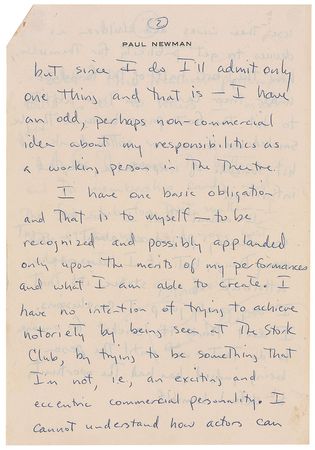 2
PAUL NEWMAN
but since I do I'll admit only
one thing and that is — I have
an odd, perhaps non-commercial
idea about my responsibilities as
a working person in The Theatre.
I have one basic obligation
and that is to myself — to be
recognized and possibly applauded
only upon the merits of my performances
and what I am able to create. I
have no intention of trying to achieve
notoriety by being seen at The Stork
Club, by trying to be something that
I'm not, ie, an exciting and
eccentric commercial personality. I
cannot understand how actors can